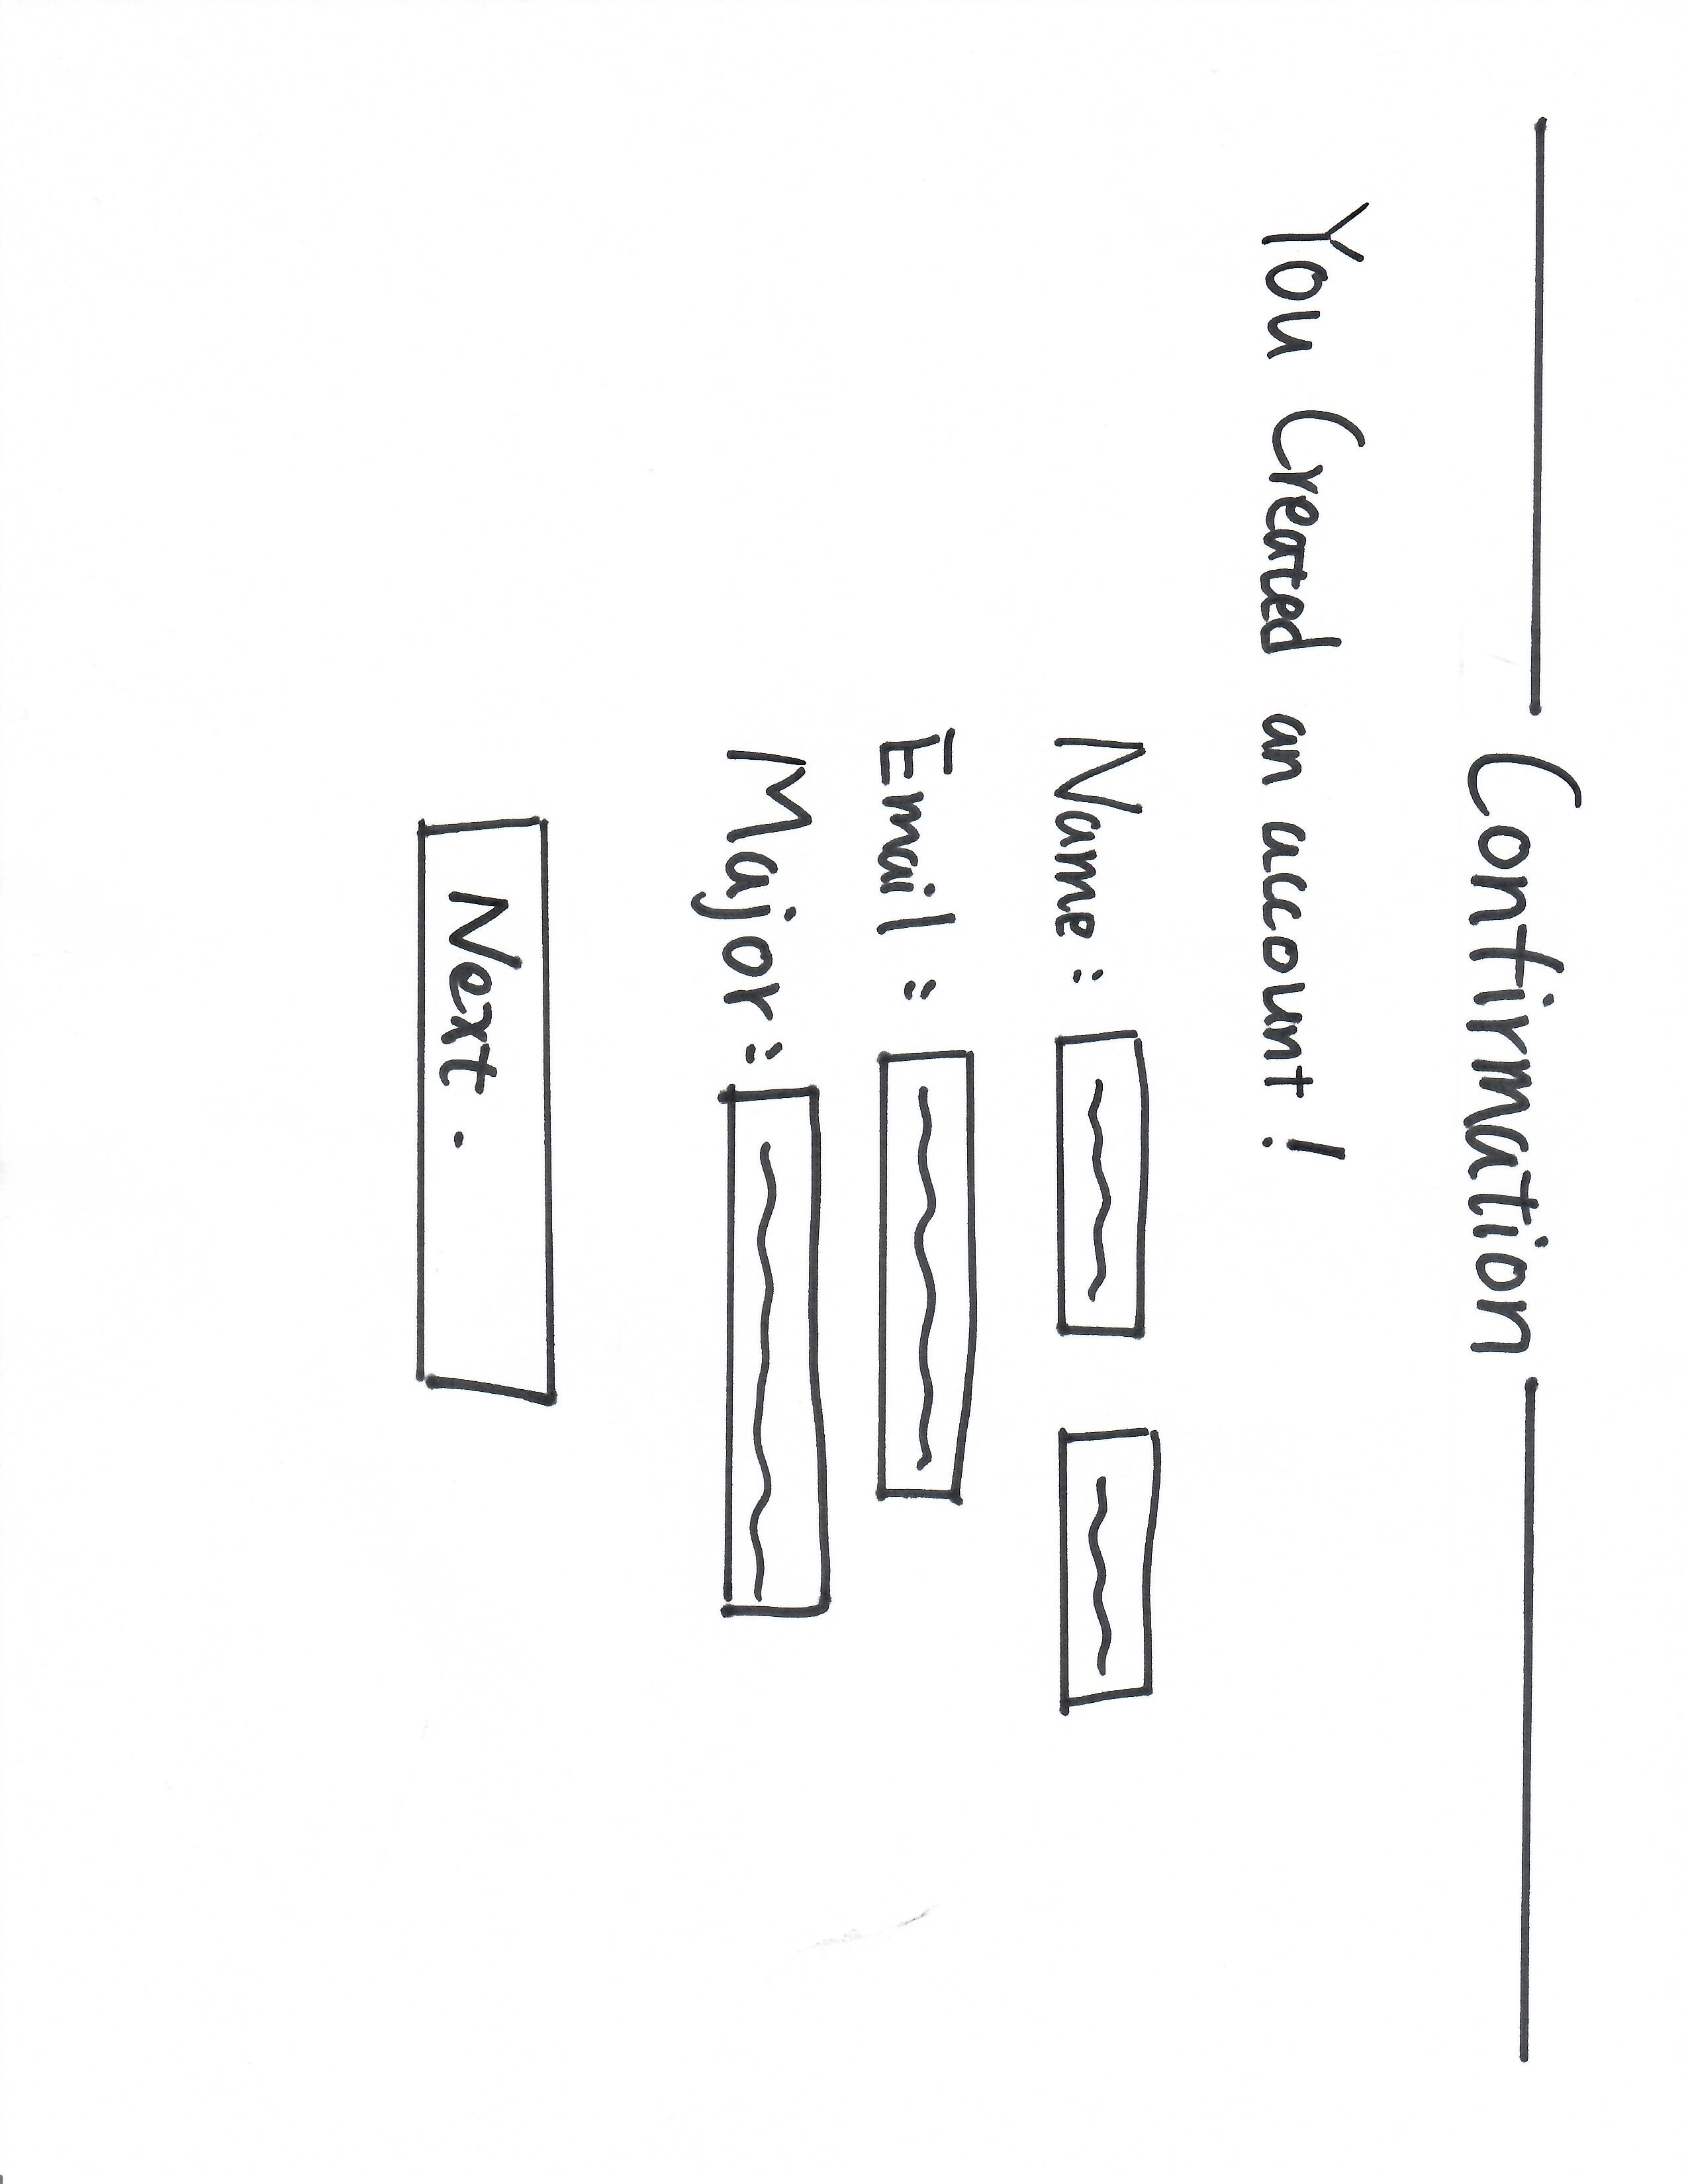 Confirmation
You Created an account!
Name:
Email:
Major:
Next.